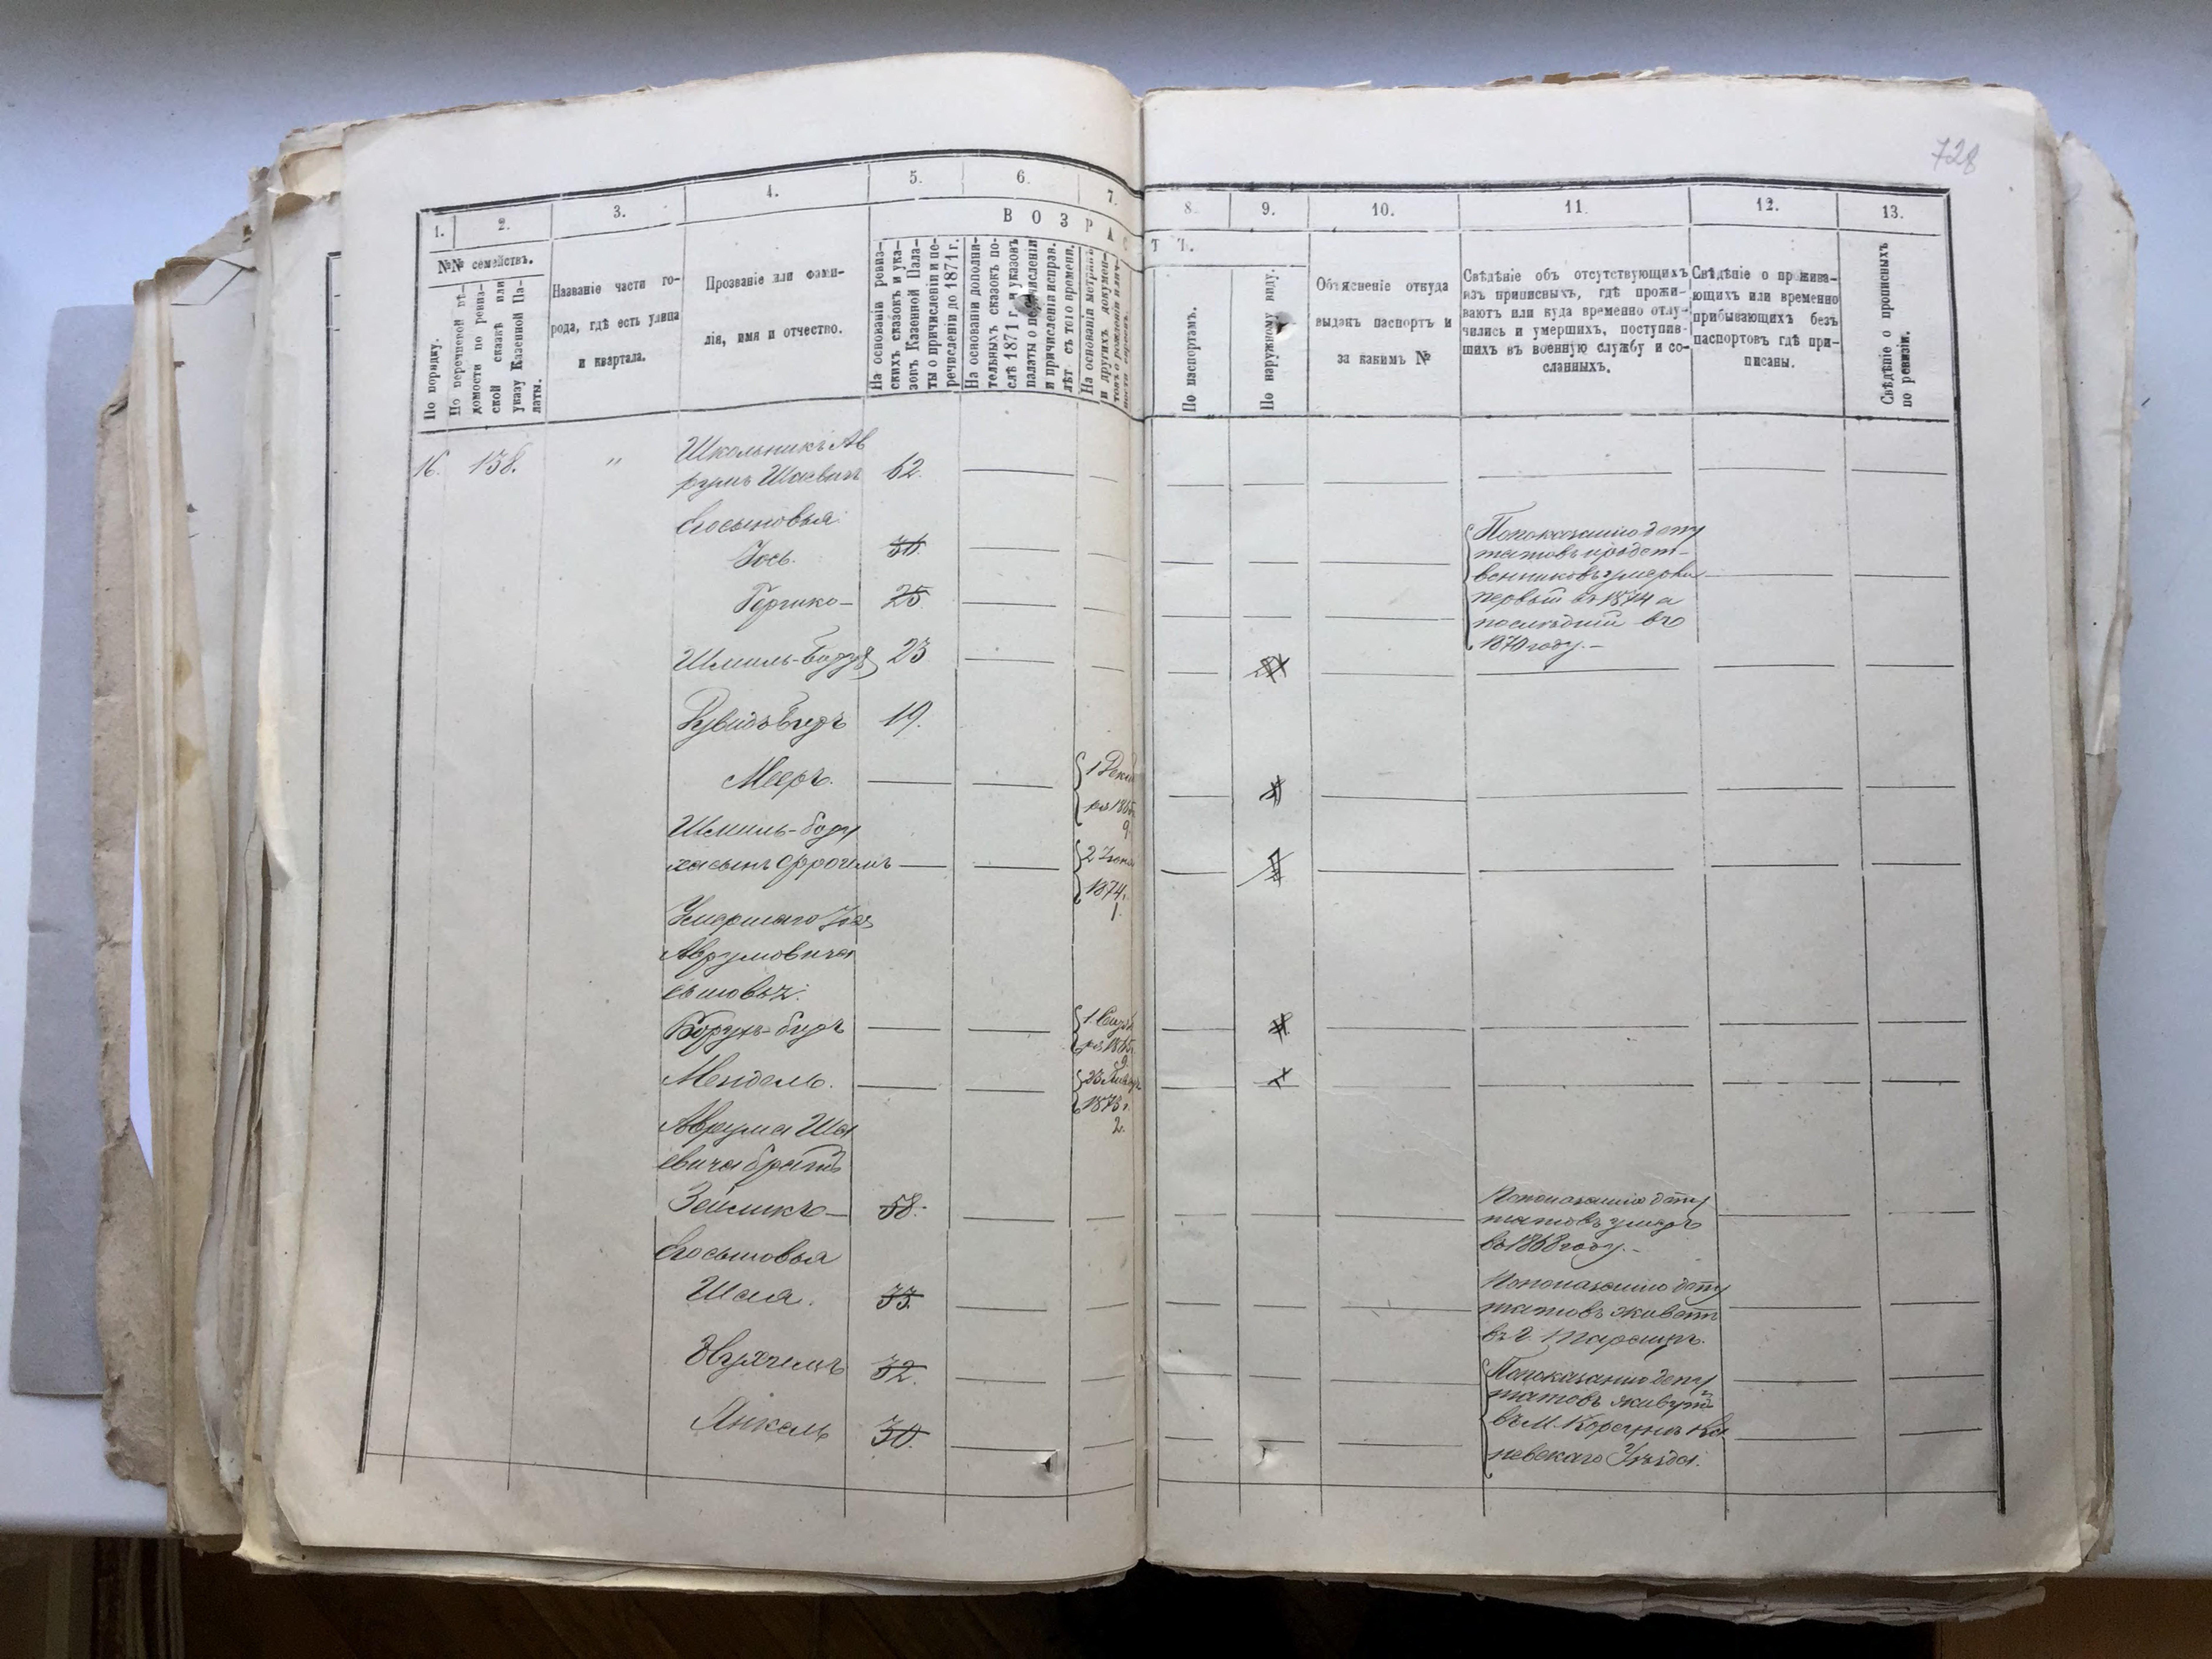 728
1. 2. 3. 4. 5. 6. 7. 8. 9. 10. 11. 12. 13.
В О З Р А С Т Ъ.
№№ семействъ.
По порядку.
По перечневой вѣ-
домости по ревиз-
ской сказкѣ или
указу Казенной Па-
латы.
Названіе части го-
рода, гдѣ есть улица
и квартала.
Прозваніе или фами-
лія, имя и отчество.
На основаніи ревиз-
скихъ сказокъ и ука-
зовъ Казенной Пала-
ты о причисленіи и пе-
речисленіи до 1871 г.
На основаніи дополни-
тельныхъ сказокъ по-
слѣ 1871 г. и указовъ
палаты о перечисленіи
и причисленія исправ.
лѣт съ того времени.
На основаніи метрикъ
и другихъ докумен-
По паспортамъ.
По наружному виду.
Объясненіе откуда
выданъ паспортъ и
за какимъ №
Свѣдѣніе объ отсутствующихъ
изъ приписныхъ, гдѣ прожи-
ваютъ или куда временно отлу-
чились и умершихъ, поступив-
шихъ въ военную службу и со-
сланныхъ.
Свѣдѣніе о прожива-
ющихъ или временно
прибывающихъ безъ
паспортовъ гдѣ при-
писаны.
Свѣдѣніе о прописныхъ
по ревизіи.
16. 138. " Школьникъ Ав
румъ Шаевич 62.
Его сыновья:
Іось. 30.
По показанію депу
татовъ и родст-
венниковъ умерли
первый въ 1874 а
послѣдній въ
1870 году.-
Гершко- 25.
Шмиль-Борух 23
Дувидъ Беръ 19.
Мееръ. 1 Декаб
ря 1865
9
Шмиль-Бору
ха сынъ Фроимъ 2 Іюня
1874.
1.
Умершаго Іося
Аврумовича
сыновья:
Борухъ-Беръ 1
ря 1865
9.
Мендель. 23
1873 г.
2.
Аврума Ша
евича братъ
Зейликъ- 58.
По показанію депу
татовъ умеръ
въ 1868 году.-
Его сыновья
Шая. 33.
По показанію депу
татовъ живетъ
въ г. Таращѣ.
Нухимъ 32.
По показанію депу
татовъ живутъ
въ М. Корсунѣ Ка
невскаго Уѣзда.
Янкель 30.